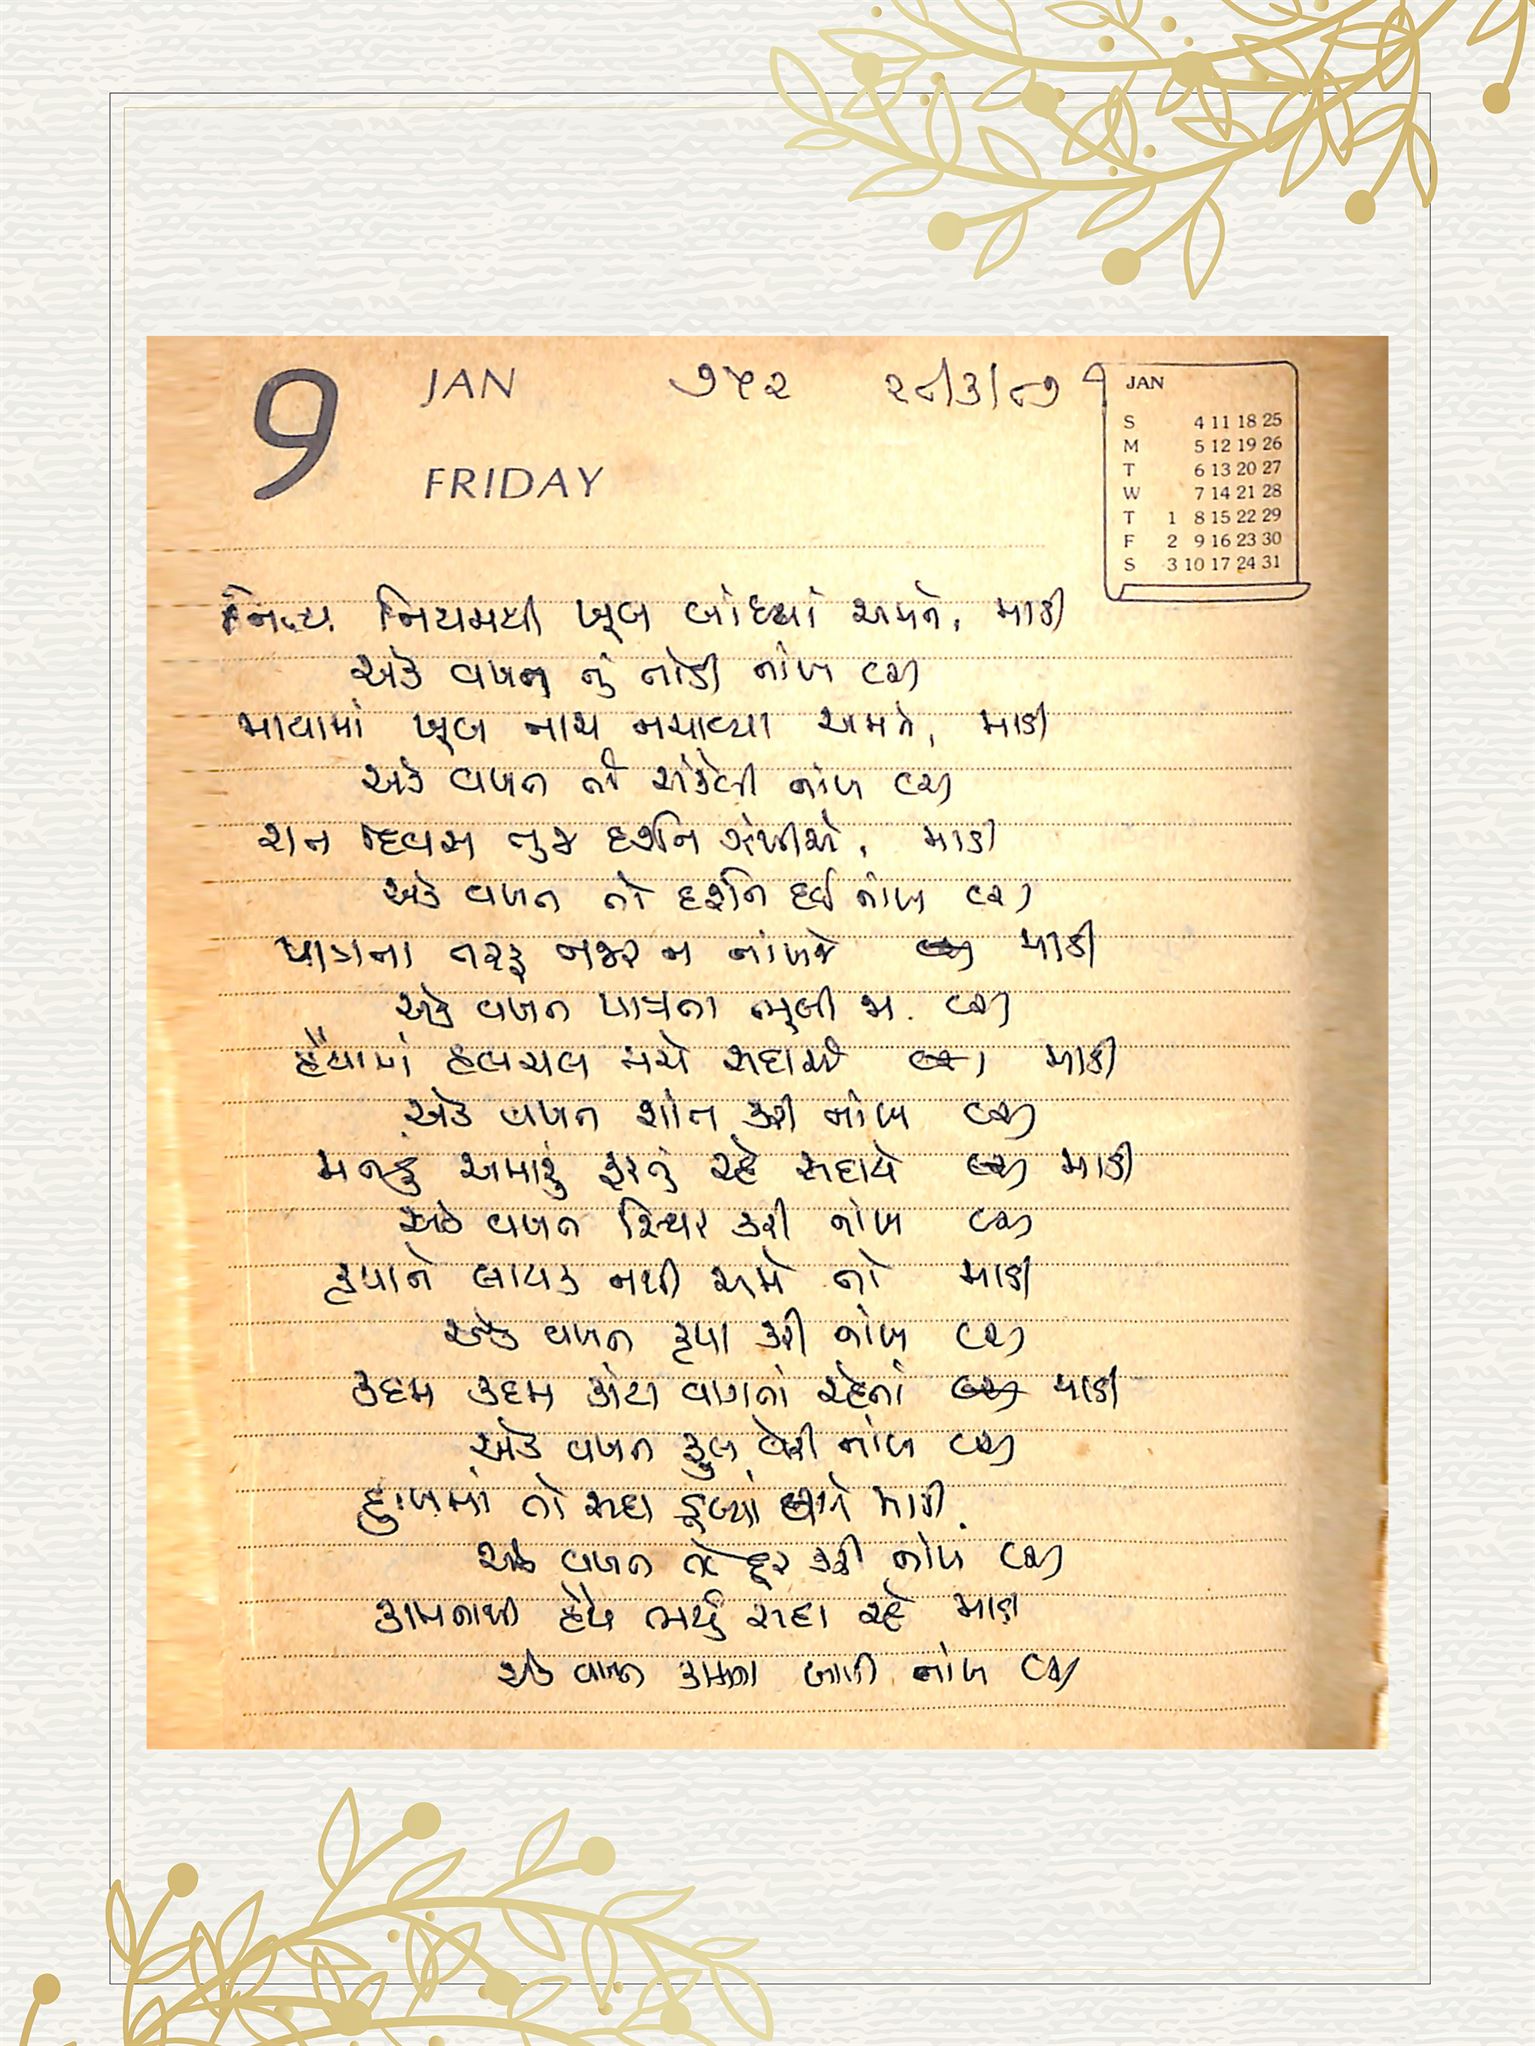 9 JAN ૭૫૨ ૨૮/૩/૮૭
FRIDAY
JAN
S 4 11 18 25
M 5 12 19 26
T 6 13 20 27
W 7 14 21 28
T 1 8 15 22 29
F 2 9 16 23 30
S 3 10 17 24 31
નિત્ય નિયમથી ખૂબ બાંધ્યાં અમને, માડી
એક વખત તું તોડી નાંખ
માયામાં ખૂબ નાચ નચાવ્યા અમને, માડી
એક વખત તો સંકેલી નાંખ
રાત દિવસ તુજ દર્શન ઝંખીએ, માડી
એક વખત તો દર્શન દઈ નાંખ
પાત્રતા તરફ નજર ન નાંખજે માડી
એક વખત પાત્રતા ભૂલી જા
હૈયામાં હલચલ મચે સદાએ માડી
એક વખત શાંત કરી નાંખ
મનડું અમારું ફરતું રહે સદાયે માડી
એક વખત સ્થિર કરી નાંખ
કૃપાને લાયક નથી અમે તો માડી
એક વખત કૃપા કરી નાંખ
કદમ કદમ કાંટા વાગતાં રહેતાં માડી
એક વખત ફુલ વેરી નાંખ
દુઃખમાં તો સદા ડૂબ્યાં અમે માડી
એક વખત તે દૂર કરી નાંખ
કામનાથી હૈયું ભર્યું સદા રહે માડી
એક વખત કામના બાળી નાંખ